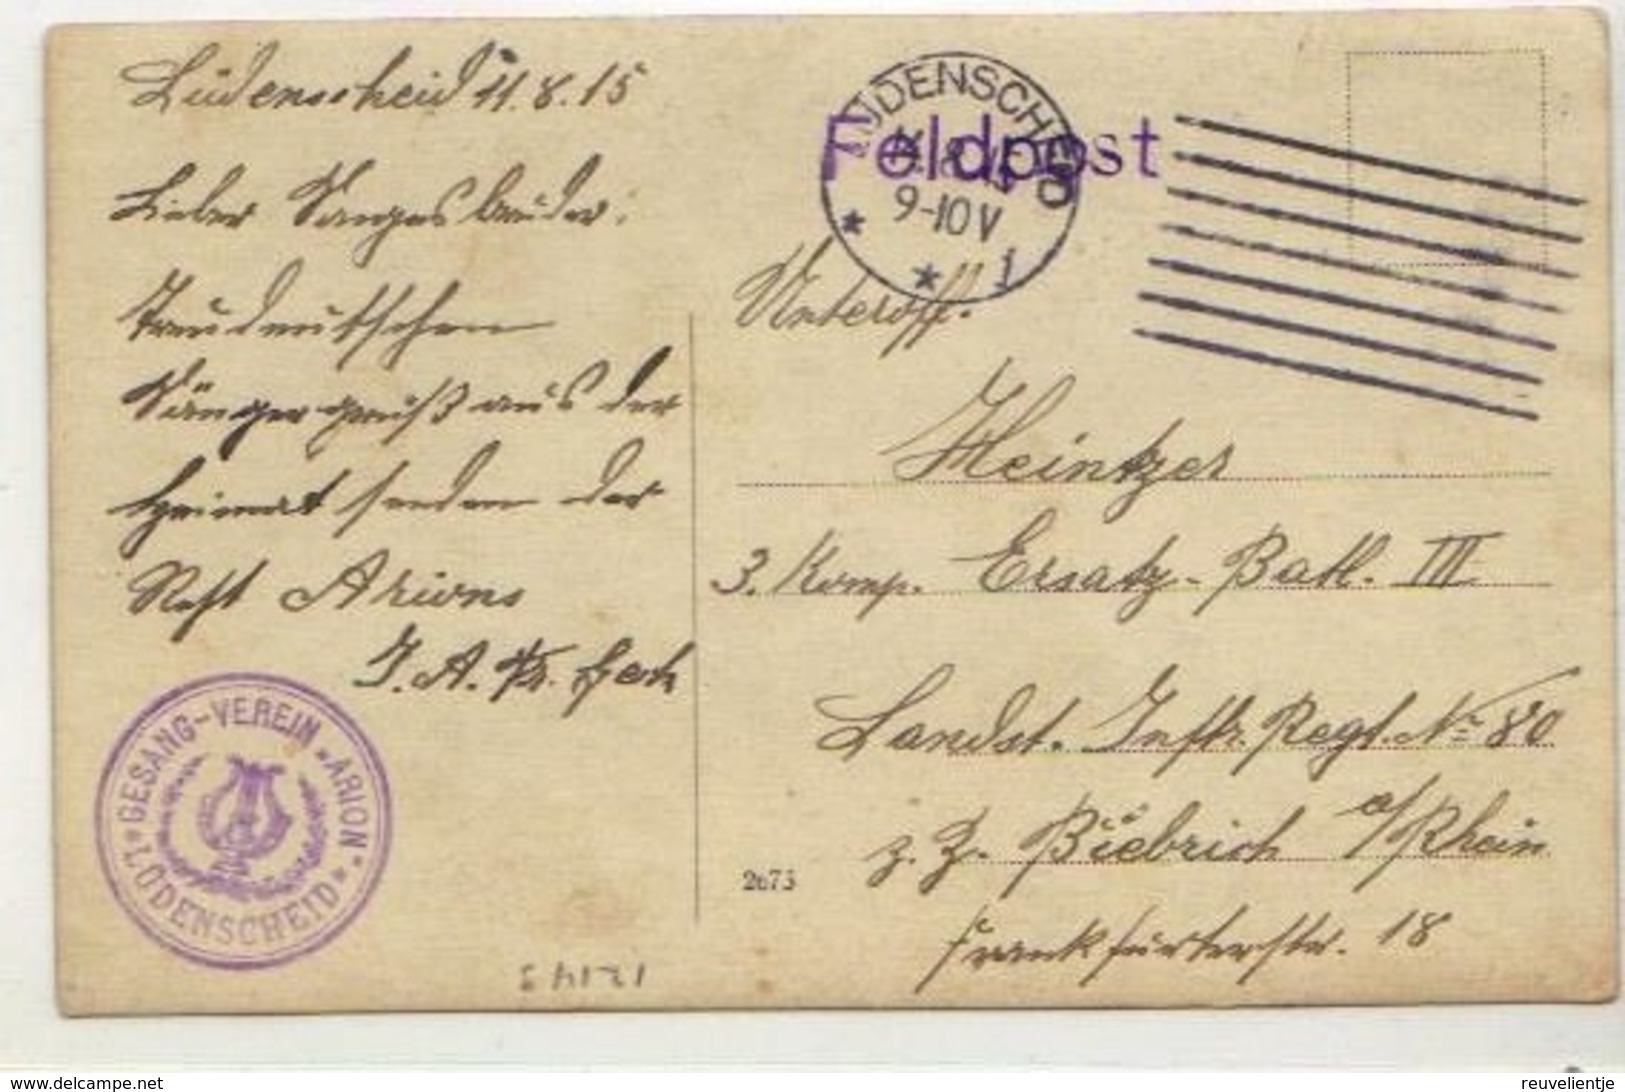 Lüdenscheid 11.8.15
Lieber Sangesbruder!
Treudeutschen
Sängergruß aus der
Heimat senden der
Rest Arions
I. A.
GESANG-VEREIN "ARION"
* LÜDENSCHEID *
LÜDENSCHEID
8.15
9-10 V
* * 1
Feldpost
Unteroff.
Heintzer
3. Komp. Ersatz-Batl. III
Landst. Inftr. Regt. No 80
z. Z. Biebrich a/Rhein
Frankfurterstr. 18
2675
www.delcampe.net
reuvelientje